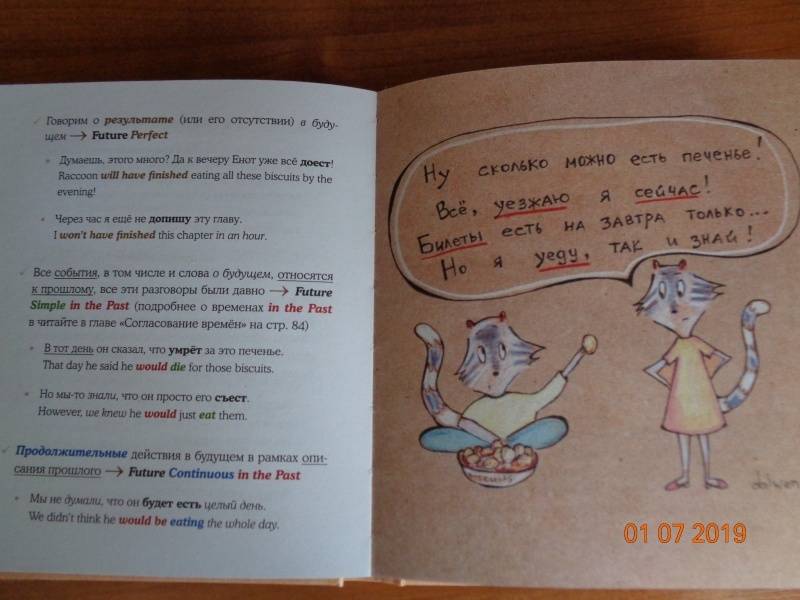 Говорим о результате (или его отсутствии) в буду-
щем → Future Perfect
Думаешь, этого много? Да к вечеру Енот уже всё доест!
Raccoon will have finished eating all these biscuits by the
evening!
Через час я ещё не допишу эту главу.
I won't have finished this chapter in an hour.
Все события, в том числе и слова о будущем, относятся
к прошлому, все эти разговоры были давно → Future
Simple in the Past (подробнее о временах in the Past
в читайте в главе «Согласование времён» на стр. 84)
В тот день он сказал, что умрёт за это печенье.
That day he said he would die for those biscuits.
Но мы-то знали, что он просто его съест.
However, we knew he would just eat them.
Продолжительные действия в будущем в рамках опи-
сания прошлого → Future Continuous in the Past
Мы не думали, что он будет есть целый день.
We didn't think he would be eating the whole day.
Ну сколько можно есть печенье!
Всё, уезжаю я сейчас!
Билеты есть на завтра только...
Но я уеду, так и знай!
BISCUITS
01 07 2019